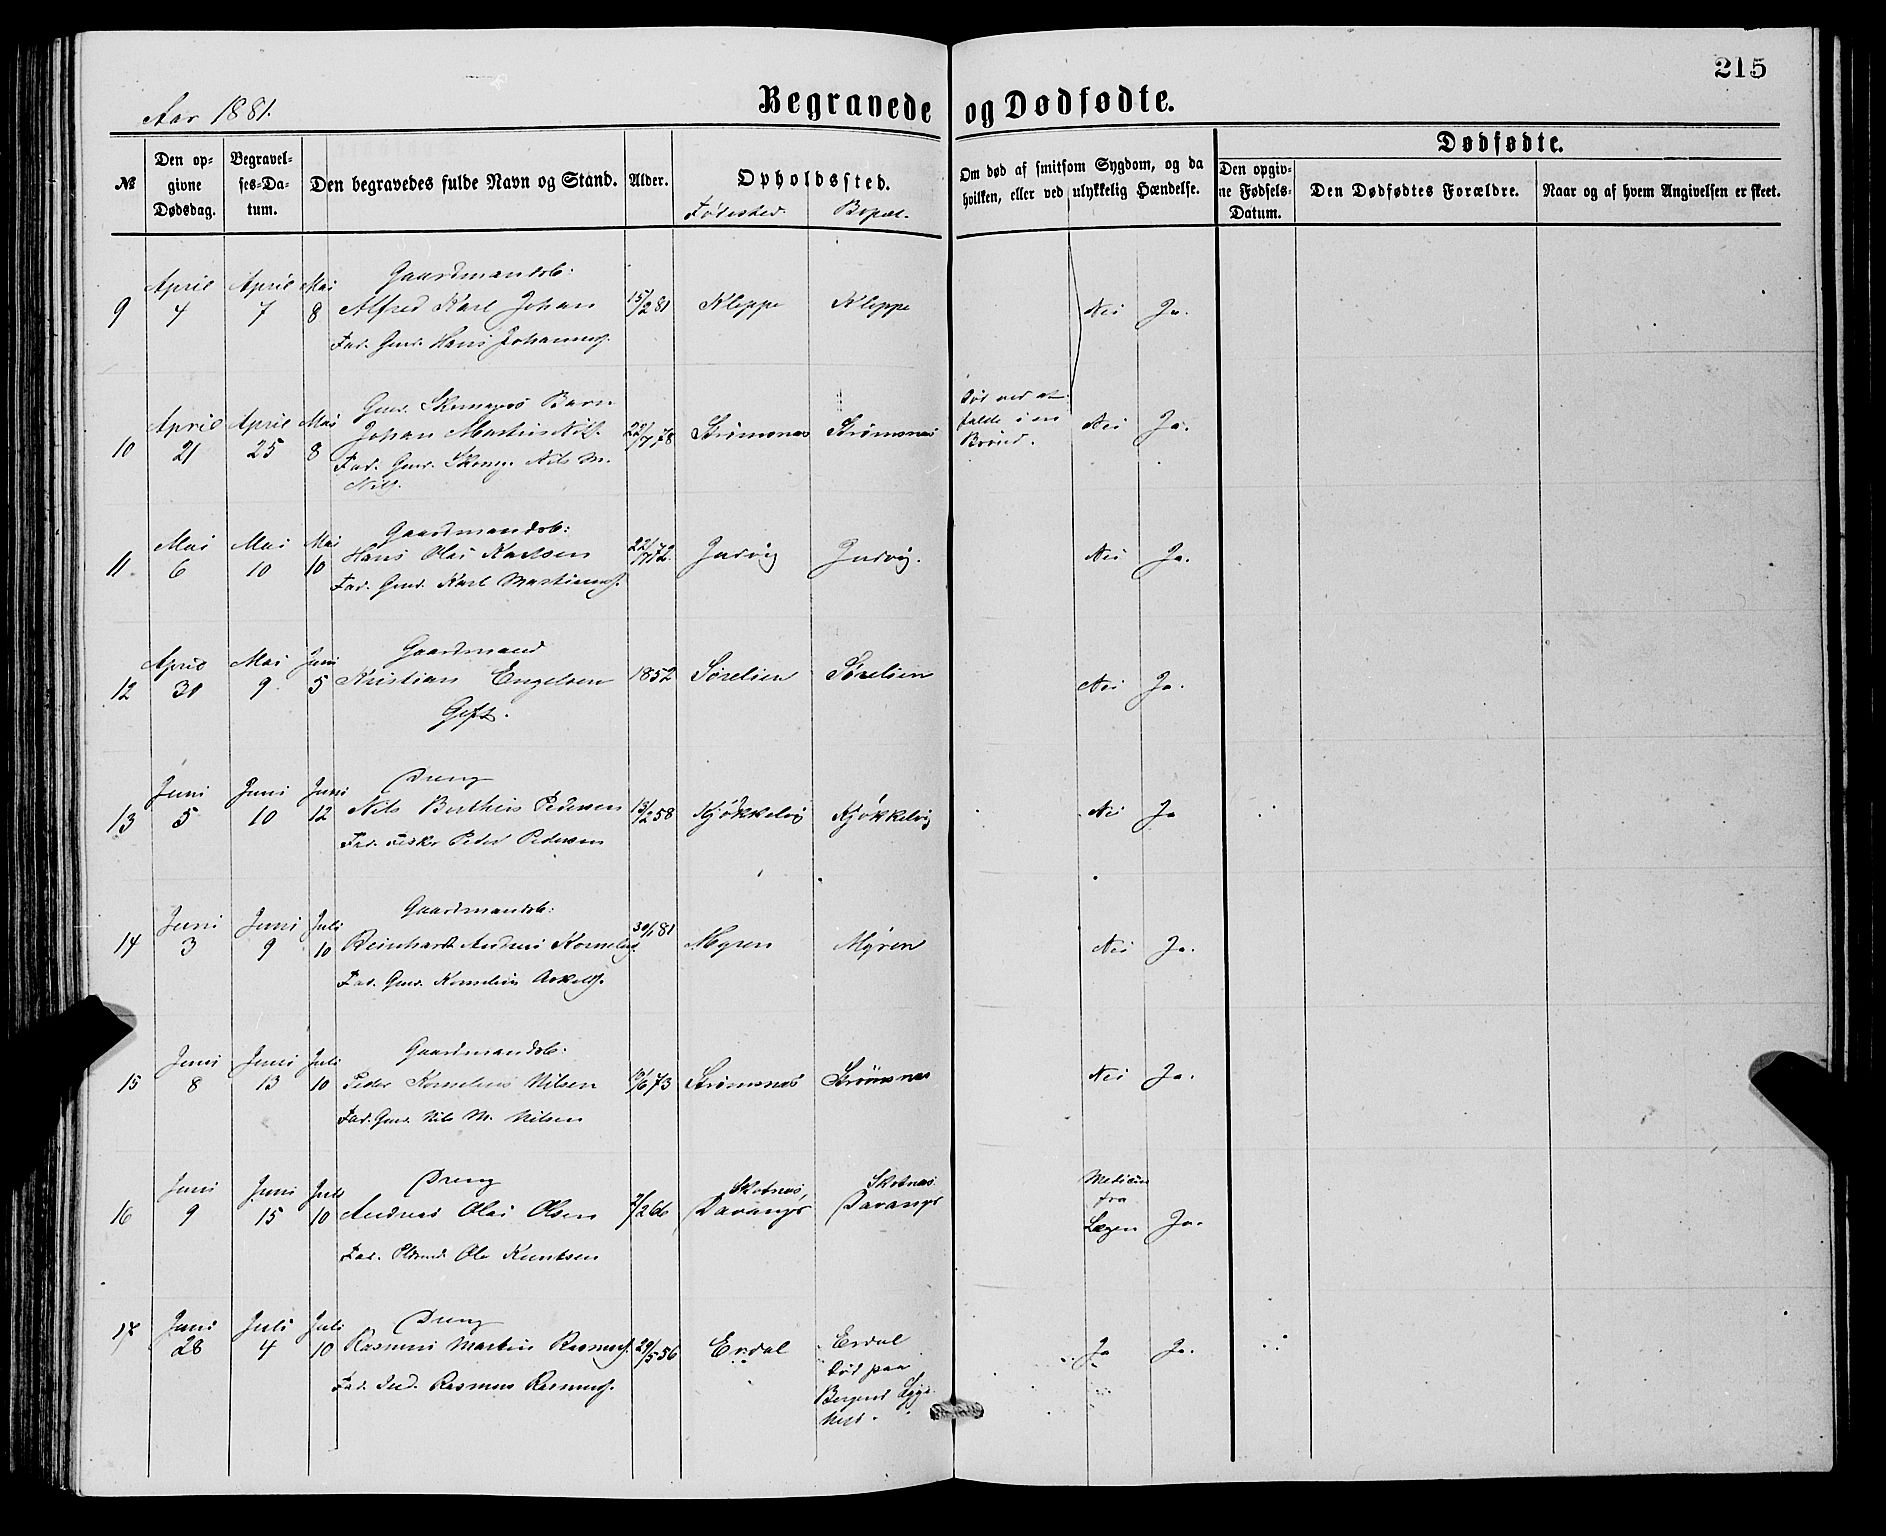 215
Aar 1881.
Begravede og Dødfødte.
№
Den op-
givne
Dødsdag.
Begravel-
ses-Da-
tum.
Den begravedes fulde Navn og Stand.
Alder.
Opholdssted.
Fødested. Bopæl.
Om død af smitsom Sygdom, og da
hvilken, eller ved ulykkelig Hændelse.
Dødfødte.
Den opgiv-
ne Fødsels-
Datum.
Den Dødfødtes Forældre.
Naar og af hvem Angivelsen er skeet.
Gaardmandsb:
9 April 4 April 7 Mai 8 Alfred Karl Johan 15/2 81 Kleppe Kleppe Nei Ja.
Fad. Gmd. Hans Johannes.
Gmd. Skomagers Barn
10 April 21 April 25 Mai 8 Johan Martin Nils. 22/7 78 Strømsnes Strømsnes Død ved at falde i en Brønd. Nei Ja.
Fad. Gmd. Skomg. Nils M.
Nils.
Gaardmandsb:
11 Mai 6 Mai 10 Mai 10 Hans Olai Karlsen 22/7 72 Juvvig Juvvig. Nei Ja.
Fad. Gmd. Karl Martinus.
Gaardmand
12 April 30 Mai 9 Juni 5 Kristian Engelsen 1852 Sørelien Sørelien Nei Ja.
Gift.
Dreng
13 Juni 5 Juni 10 Juni 12 Nils Berthin Pedersen 13/2 58 Kjøkkelvig Kjøkkelvig Nei Ja
Fad. Fisker Peder Pedersen
Gaardmandsb:
14 Juni 3 Juni 9 Juli 10 Reinhardt Andreas Kornelius. 30/1 81 Myren Myren Nei Ja.
Fad. Gmd. Kornelius Askelds.
Gaardmandsb:
15 Juni 8 Juni 13 Juli 10 Peder Kornelius Nilsen 10/6 73 Strømsnes Strømsnes Nei Ja.
Fad. Gmd. Nils M. Nilsen
Dreng
16 Juni 9 Juni 15 Juli 10 Andreas Olai Olsen 2/2 66 Skotnes, Davanger Skotnes Davanger Medicin fra Lægen Ja.
Fad. Ole Knutsen
Dreng
17 Juni 28 Juli 4 Juli 10 Rasmus Martin Rasmus. 29/5 56 Erdal Erdal Ja Ja.
død paa
Fad. Rasmus Rasmus.
Bergens